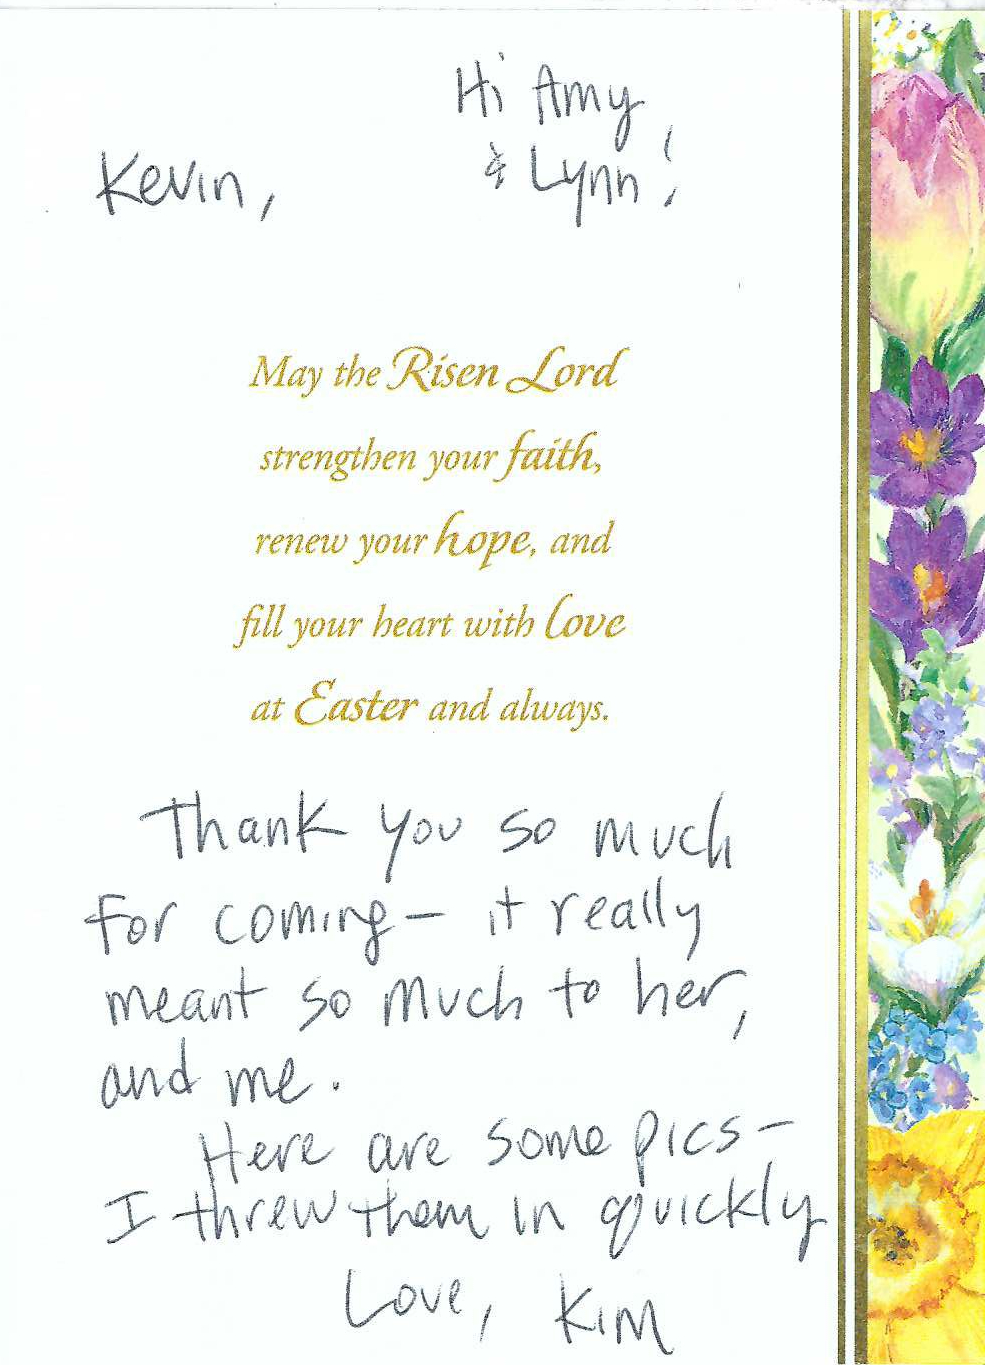 Hi Amy
& Lynn!
Kevin,
May the Risen Lord
strengthen your faith,
renew your hope, and
fill your heart with love
at Easter and always.
Thank you so much
for coming – it really
meant so much to her,
and me.
Here are some pics –
I threw them in quickly
Love, Kim